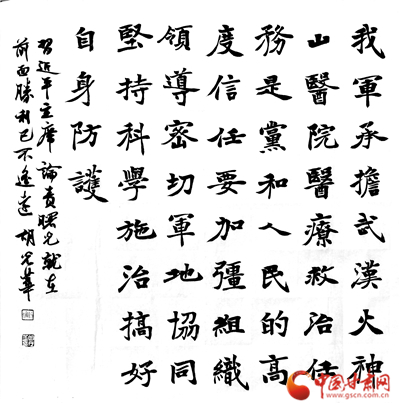 我軍承擔武漢火神
山醫院醫療救治任
務是黨和人民的高
度信任要加彊組織
領導密切軍地協同
堅持科學施治搞好
自身防護
習近平主席論曙光就在
前面勝利已不遙遠 胡光華
中国甘肃网
www.gscn.com.cn